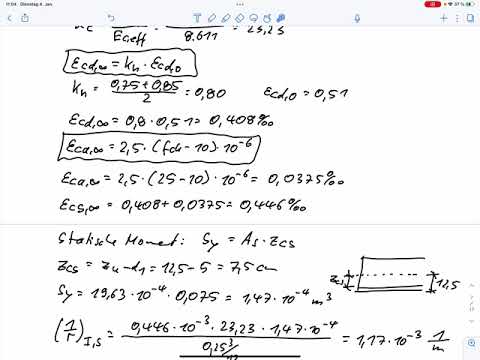 11:04 Dienstag 4. Jan.
37 %
Ec,eff 8.611 = 23,23
εcd,∞ = kh · εcd,0
kh = (0,75 + 0,85) / 2 = 0,80 εcd,0 = 0,51
εcd,∞ = 0,8 · 0,51 = 0,408 ‰
εca,∞ = 2,5 · (fck - 10) · 10⁻⁶
εca,∞ = 2,5 · (25 - 10) · 10⁻⁶ = 0,0375 ‰
εcs,∞ = 0,408 + 0,0375 = 0,446 ‰
Statische Moment: Sy = As · zcs
zcs = zu - d1 = 12,5 - 5 = 7,5 cm
zcs 12,5
Sy = 19,63 · 10⁻⁴ · 0,075 = 1,47 · 10⁻⁴ m³
(1/r) I,S = (0,446 · 10⁻³ · 23,23 · 1,47 · 10⁻⁴) / (0,25³/12) = 1,17 · 10⁻³ 1/m